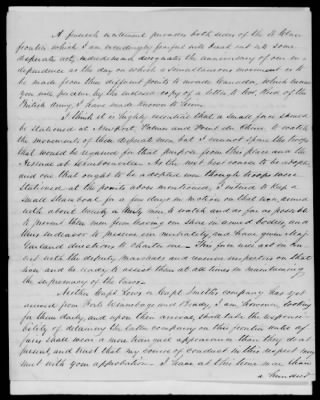 A feverish excitement pervades both sides of the St Clair
frontier which I am exceedingly fearful will break out into some
desperate act, rumor and designates the anniversary of our in-
dependence as the day on which a simultaneous movement is to
be made from three different points to invade Canada, which
you will perceive by the enclosed copy of a letter to Col. Reed of the
British Army, I have made known to them.
I think it is highly essential that a small force should
be stationed at Newport, Palmer and Point du Chene to watch
the movements of these desperate men, but I cannot spare the troops
that would be required for that purpose from this place and the
Arsenal at Dearbornville. As the next best course to be adopted
and one that ought to be adopted even though troops were
stationed at the points above mentioned, I intend to keep a
small steam boat for a few days in motion on that river, armed
with about twenty or thirty men to watch and as far as possible
to prevent these men from leaving our shore in armed bodies, and
thus endeavor to preserve our neutrality, and have given Maj
Garland directions to charter one. This force will act in con-
cert with the deputy Marshals and revenue inspectors on that
river and be ready to assist them at all times in maintaining
the supremacy of the Laws.
Neither Capt. or Capt. Smith's company has yet
arrived from Fort Winnebago and Brady, I am however, looking
for them daily, and upon their arrival, shall take the responsi-
bility of detaining the latter company on this frontier until af-
fairs shall wear a more tranquil appearance than they do at
present, and trust that my course of conduct in this respect may
meet with your approbation. I have at this time more than
a hundred